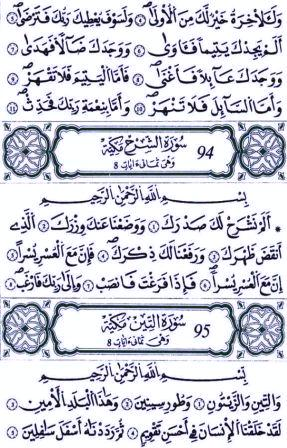 وَلَلْآخِرَةُ خَيْرٌ لَكَ مِنَ الْأُولَىٰ ④ وَلَسَوْفَ يُعْطِيكَ رَبُّكَ فَتَرْضَىٰ ⑤
أَلَمْ يَجِدْكَ يَتِيمًا فَآوَىٰ ⑥ وَوَجَدَكَ ضَالًّا فَهَدَىٰ ⑦
وَوَجَدَكَ عَائِلًا فَأَغْنَىٰ ⑧ فَأَمَّا الْيَتِيمَ فَلَا تَقْهَرْ ⑨
وَأَمَّا السَّائِلَ فَلَا تَنْهَرْ ⑩ وَأَمَّا بِنِعْمَةِ رَبِّكَ فَحَدِّثْ ⑪
94 سُورَةُ الشَّرْحِ مَكِّيَّة
وَهِيَ ثَمَانِي آيَاتٍ 8
بِسْمِ اللَّهِ الرَّحْمَٰنِ الرَّحِيمِ
أَلَمْ نَشْرَحْ لَكَ صَدْرَكَ ① وَوَضَعْنَا عَنْكَ وِزْرَكَ ② الَّذِي
أَنْقَضَ ظَهْرَكَ ③ وَرَفَعْنَا لَكَ ذِكْرَكَ ④ فَإِنَّ مَعَ الْعُسْرِ يُسْرًا ⑤
إِنَّ مَعَ الْعُسْرِ يُسْرًا ⑥ فَإِذَا فَرَغْتَ فَانْصَبْ ⑦ وَإِلَىٰ رَبِّكَ فَارْغَبْ ⑧
95 سُورَةُ التِّينِ مَكِّيَّة
وَهِيَ ثَمَانِي آيَاتٍ 8
بِسْمِ اللَّهِ الرَّحْمَٰنِ الرَّحِيمِ
وَالتِّينِ وَالزَّيْتُونِ ① وَطُورِ سِينِينَ ② وَهَٰذَا الْبَلَدِ الْأَمِينِ ③
لَقَدْ خَلَقْنَا الْإِنْسَانَ فِي أَحْسَنِ تَقْوِيمٍ ④ ثُمَّ رَدَدْنَاهُ أَسْفَلَ سَافِلِينَ ⑤